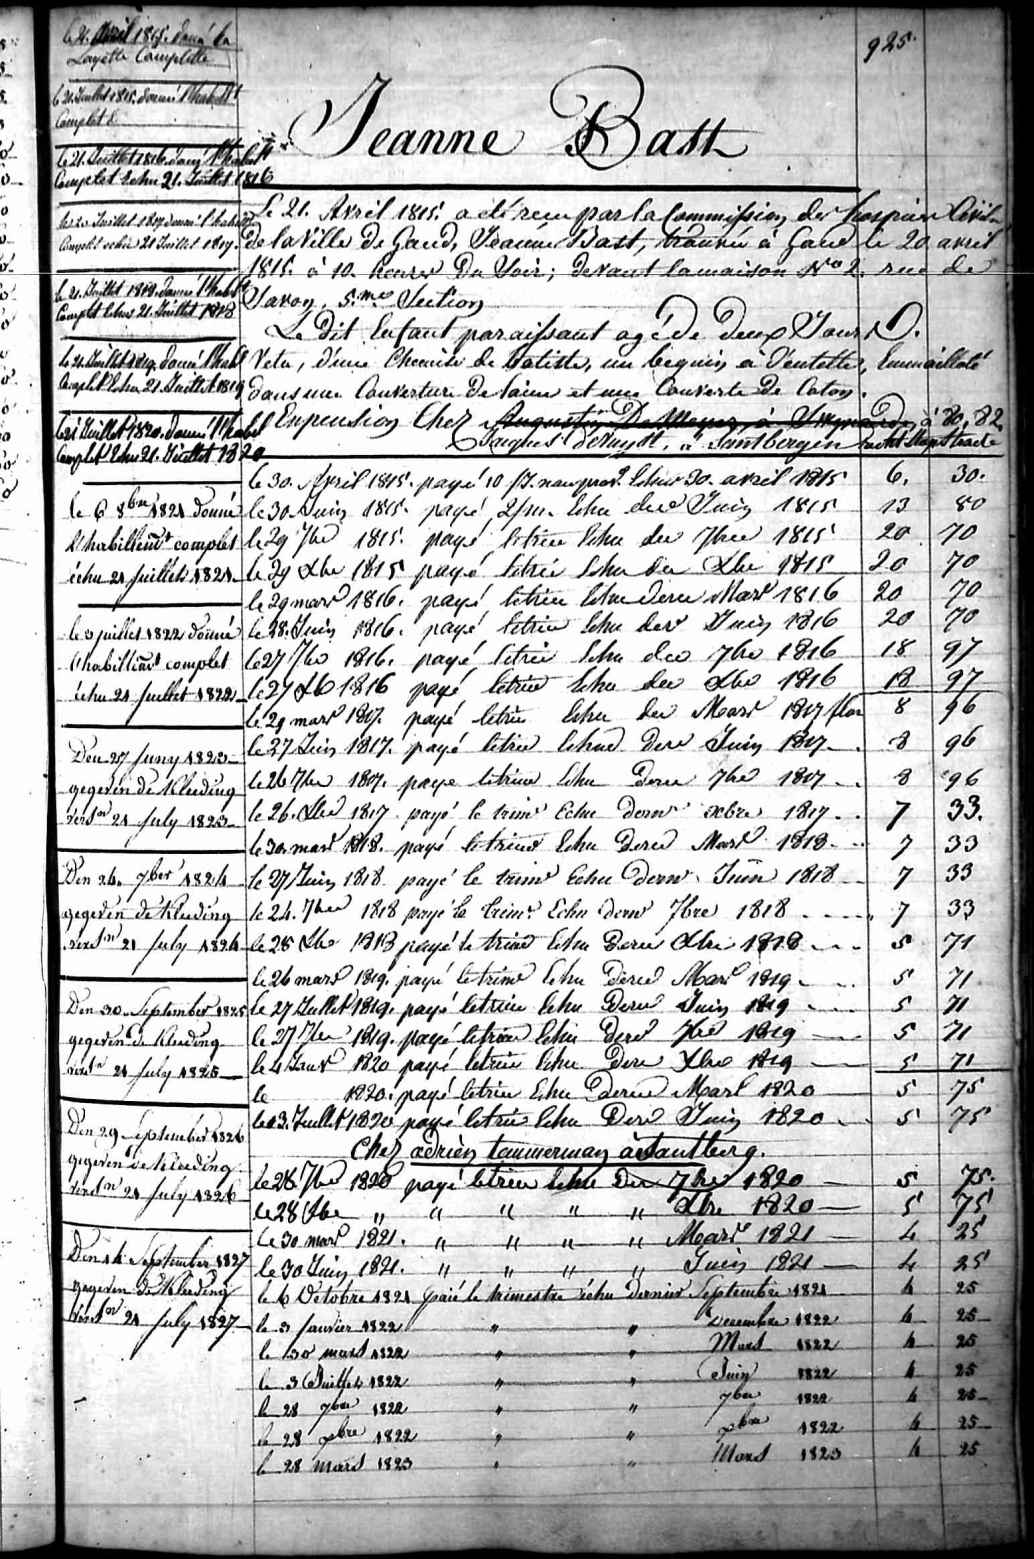 925.
Jeanne Bast
le 21. Avril 1815. donné la
Layette Complette
le 21. Juillet 1815. donné l'habillt
Complet
le 21. Juillet 1816. donné l'habillt
Complet Echu 21. Juillet 1816
Juillet 1817 donné l'habillt
Complet echu 21 Juillet 1817.
le 21. Juillet 1818. donné l'habillt
Complet Echu 21. Juillet 1818
le 21. Juillet 1819. donné l'habillt
Complet Echu 21. Juillet 1819
Juillet 1820. donné l'habillt
Complet Echu 21. Juillet 1820
le 6 8bre 1821 donné
l'habillemt complet
échu 21 juillet 1821.
le 3 juillet 1822 donné
l'habillemt complet
échu 21 juillet 1822
Den 27 Juny 1823
gegeven de kleeding
21 July 1823
Den 26. 7ber 1824
gegeven de kleeding
21 July 1824
Den 30 September 1825
gegeven de kleeding
21 July 1825
Den 29 September 1826
gegeven de kleeding
21 July 1826
Den 14 September 1827
gegeven de kleeding
21 July 1827
Le 21. Avril 1815. a été recu par la Commission des hospices Civils
de la Ville de Gand, Jeanne Bast, trouvée à Gand le 20 avril
1815. à 10. heures Du Soir; devant la maison No 2. rue de
Savon, 5.me Section
Le dit Enfant paraissant agé De Deux Jours
Vetu, d'une Chemise de batiste, un beguin à Dentelle, Emmailloté
dans une Couverture de laine et une Couverte de Coton.
En pension Chez Augustin De Meyer, à
Jacques deRuydt, a Santbergen
le 30. April 1815. payé 10 echu 30. avril 1815 6. 30.
le 30 Juin 1815. payé, 2/m. Echu der Juin 1815 13 80
le 29 7bre 1815. payé letrim Echu der 7bre 1815 20 70
le 29 Xbre 1815 payé letrim Echu der Xbre 1815 20 70
le 29 mars 1816. payé letrim Echu dern Mars 1816 20 70
le 28. Juin 1816. payé letrim Echu der Juin 1816 20 70
le 27 7bre 1816. payé letrim Echu der 7bre 1816 18 97
le 27 Xb 1816 payé letrim Echu der Xbre 1816 18 97
le 29 mars 1817. payé letrim Echu der Mars 1817 flor 8 96
le 27 Juin 1817. payé letrim Echu dern Juin 1817 8 96
le 26 7bre 1817. payé letrim Echu Dern 7bre 1817 8 96
le 26. Xbre 1817 payé le trimr Echu dernr xbre 1817 7 33.
le 30. mars 1818. payé letrim Echu Dern Mars 1818 7 33
le 27 Juin 1818 payé le trimr Echu dernr Juin 1818 7 33
le 24. 7bre 1818 payé le trimr. Echu dernr 7bre 1818 7 33
le 28 Xbre 1818 payé le trim Echu Dern Xbre 1818 5 71
le 26 mars 1819. payé letrim Echu Dern Mars 1819 5 71
le 27 Juillet 1819. payé letrim Echu Dern Juin 1819 5 71
le 27 7bre 1819. payé letrim Echu Dern 7bre 1819 5 71
le 4 Janvr 1820 payé letrim Echu Dern Xbre 1819 5 71
le 1820. payé letrim Echu Dern Mars 1820 5 75
le 13. Juillet 1820 payé letrim Echu Dern Juin 1820 5 75
Chez adrien tammerman à Santberg.
le 28 7bre 1820 payé letrim Echu Der 7bre 1820 5 75.
le 28 Xbre „ „ „ „ „ Xbre 1820 5 75
le 30 mars 1821. „ „ „ „ Mars 1821 4 25
le 30 Juin 1821. „ „ „ „ Juin 1821 4 25
le 6 Octobre 1821 païé le trimestre échu dernier Septembre 1821 4 25
le 3 janvier 1822 „ „ Decembre 1822 4 25
le 30 mars 1822 „ „ Mars 1822 4 25
le 3 Juillet 1822 „ „ Juin 1822 4 25
le 28 7bre 1822 „ „ 7bre 1822 4 25
le 28 xbre 1822 „ „ xbre 1822 4 25
le 28 mars 1823 „ „ Mars 1823 4 25